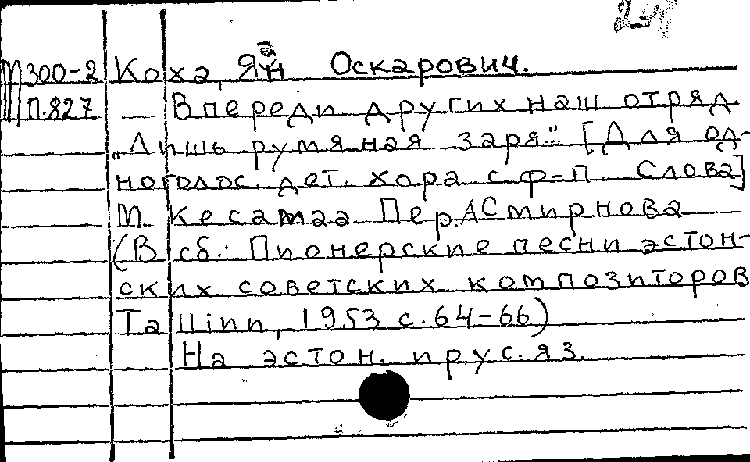 М300-2 Коха, Яан Оскарович.
П.827 — Впереди других наш отряд
„Лишь румяная заря." [Для од-
ноголос. дет. хора с ф-п Слова]
М. Кесамаа Пер. А Смирнова
(В сб: Пионерские песни эстон-
ских советских композиторов
Таllinn, 1953 с. 64-66)
На эстон. и рус. яз.